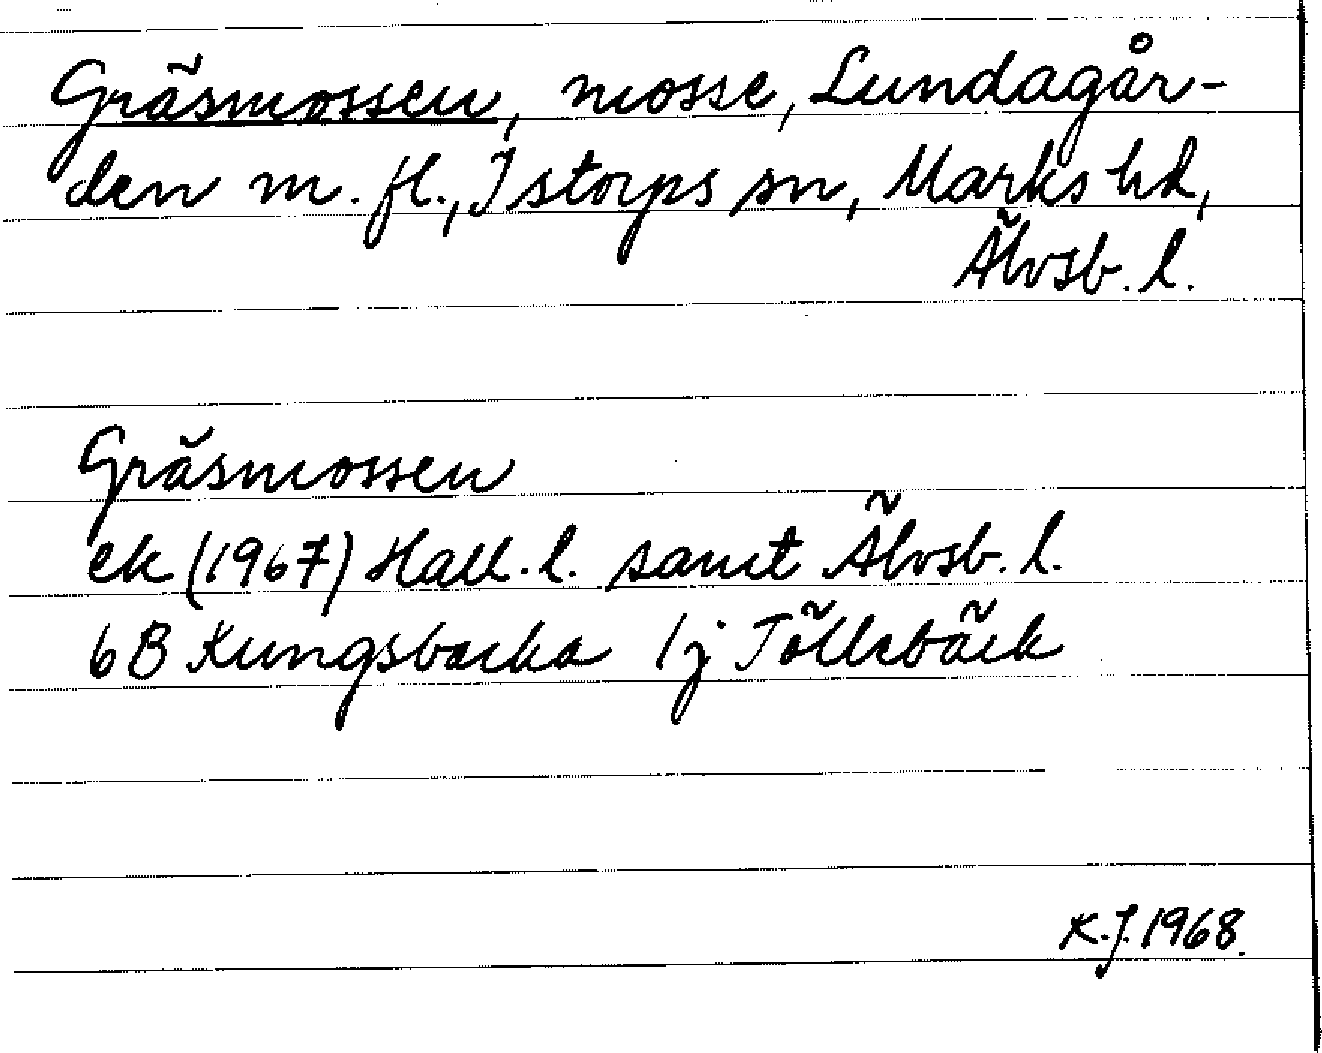 Gräsmossen, mosse, Lundagår-
den m. fl., Istorps sn, Marks hd,
Älvsb. l.
Gräsmossen
ek (1967) Hall. l. samt Älvsb. l.
6B Kungsbacka 1j Töllebäck
K.J. 1968.